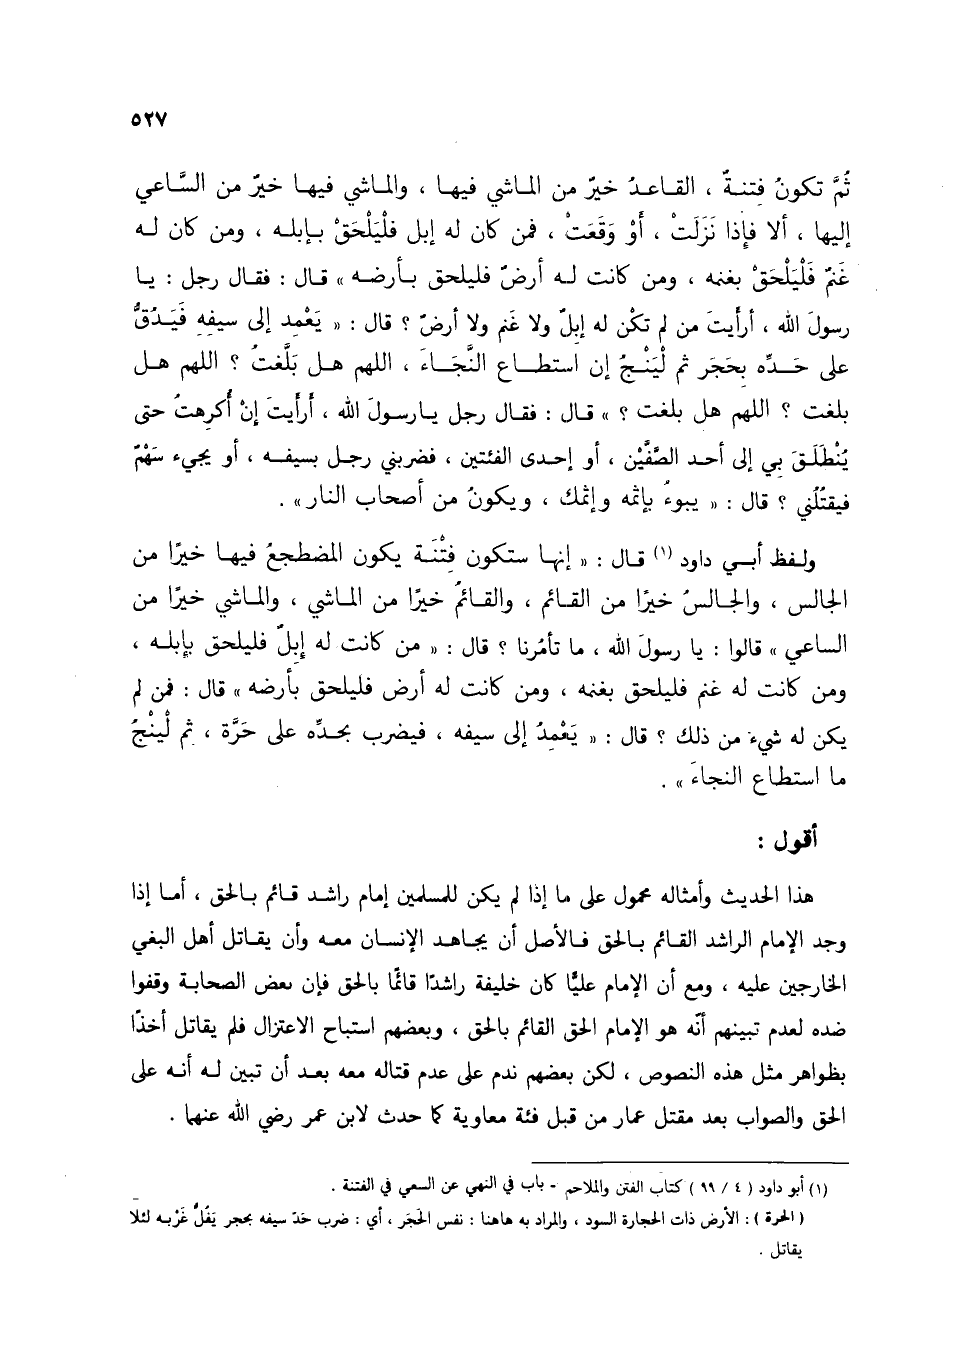 ٥٢٧
ثُمَّ تكونُ فتنـةٌ ، القـاعـدُ خيرٌ من المـاشي فيهـا ، والمـاشي فيهـا خيرٌ من السَّـاعي
إليها ، ألا فإذا نَزَلَتْ ، أوْ وَقَعَتْ ، فمن كان له إبل فلْيَلْحَقْ بـإبلـه ، ومن كان لـه
غَنمٌ فَلْيَلْحَقْ بغنمه ، ومن كانت لـه أرضٌ فليلحق بـأرضـه » قـال : فقـال رجل : يـا
رسولَ الله ، أرأيتَ من لم تكُن له إبلٌ ولا غَنم ولا أرضٌ ؟ قال : « يَعْمِد إلى سيفهِ فَيَدُقُّ
على حَـدِّه بِحَجَر ثم لْيَنْـجُ إن استطـاع النَّجَـاءَ ، اللهم هـل بَلَّغتُ ؟ اللهم هـل
بلغت ؟ اللهم هل بلغت ؟ » قـال : فقـال رجل يـارسولَ الله ، أرأيتَ إنْ أُكرهتُ حتى
يُنْطَلَقَ بي إلى أحد الصَّفَّيْن ، أو إحدى الفئتين ، فضربني رجـل بسيفـه ، أو يجيء سَهْمٌ
فيقتُلني ؟ قال : « يبوءُ بإثمه وإثمك ، ويكونُ من أصحاب النار» .
ولفظ أبـي داود (١) قـال : « إنهـا ستكون فتْنَـة يكون المضطجعُ فيهـا خيرًا من
الجالس ، والجـالسُ خيرًا من القـائم ، والقـائمُ خيرًا من المـاشي ، والمـاشي خيرًا من
الساعي » قالوا : يا رسولَ الله ، ما تأمُرنا ؟ قال : « من كانت له إبلٌ فليلحق بإبلـه ،
ومن كانت له غنم فليلحق بغنمه ، ومن كانت له أرض فليلحق بأرضه » قال : فمن لم
يكن له شيء من ذلك ؟ قال : « يَعْمِدُ إلى سيفه ، فيضرب بحـدِّه على حَرَّة ، ثم لْيَنْجُ
ما استطاع النجاءَ » .
أقول :
هذا الحديث وأمثاله محمول على ما إذا لم يكن للمسلمين إمام راشد قـائم بـالحق ، أمـا إذا
وجد الإمام الراشد القـائم بـالحق فـالأصل أن يجـاهـد الإنسـان معـه وأن يقـاتل أهل البغي
الخارجين عليه ، ومع أن الإمام عليًّا كان خليفة راشدًا قائمًا بالحق فإن بعض الصحابـة وقفوا
ضده لعدم تبينهم أنّه هو الإمام الحق القائم بالحق ، وبعضهم استباح الاعتزال فلم يقاتل أخذًا
بظواهر مثل هذه النصوص ، لكن بعضهم ندم على عدم قتاله معه بعـد أن تبين لـه أنـه على
الحق والصواب بعد مقتل عمار من قبل فئة معاوية كما حدث لابن عمر رضي الله عنهما .
(١) أبو داود ( ٤ / ٩٩ ) كتاب الفتن والملاحم - باب في النهي عن السعي في الفتنة .
( الحرة ) : الأرض ذات الحجارة السود ، والمراد به هاهنا : نفس الحَجَر ، أي : ضرب حَدّ سيفه بحجر يَفُلُّ غَرْبـه لئلا
يقاتل .